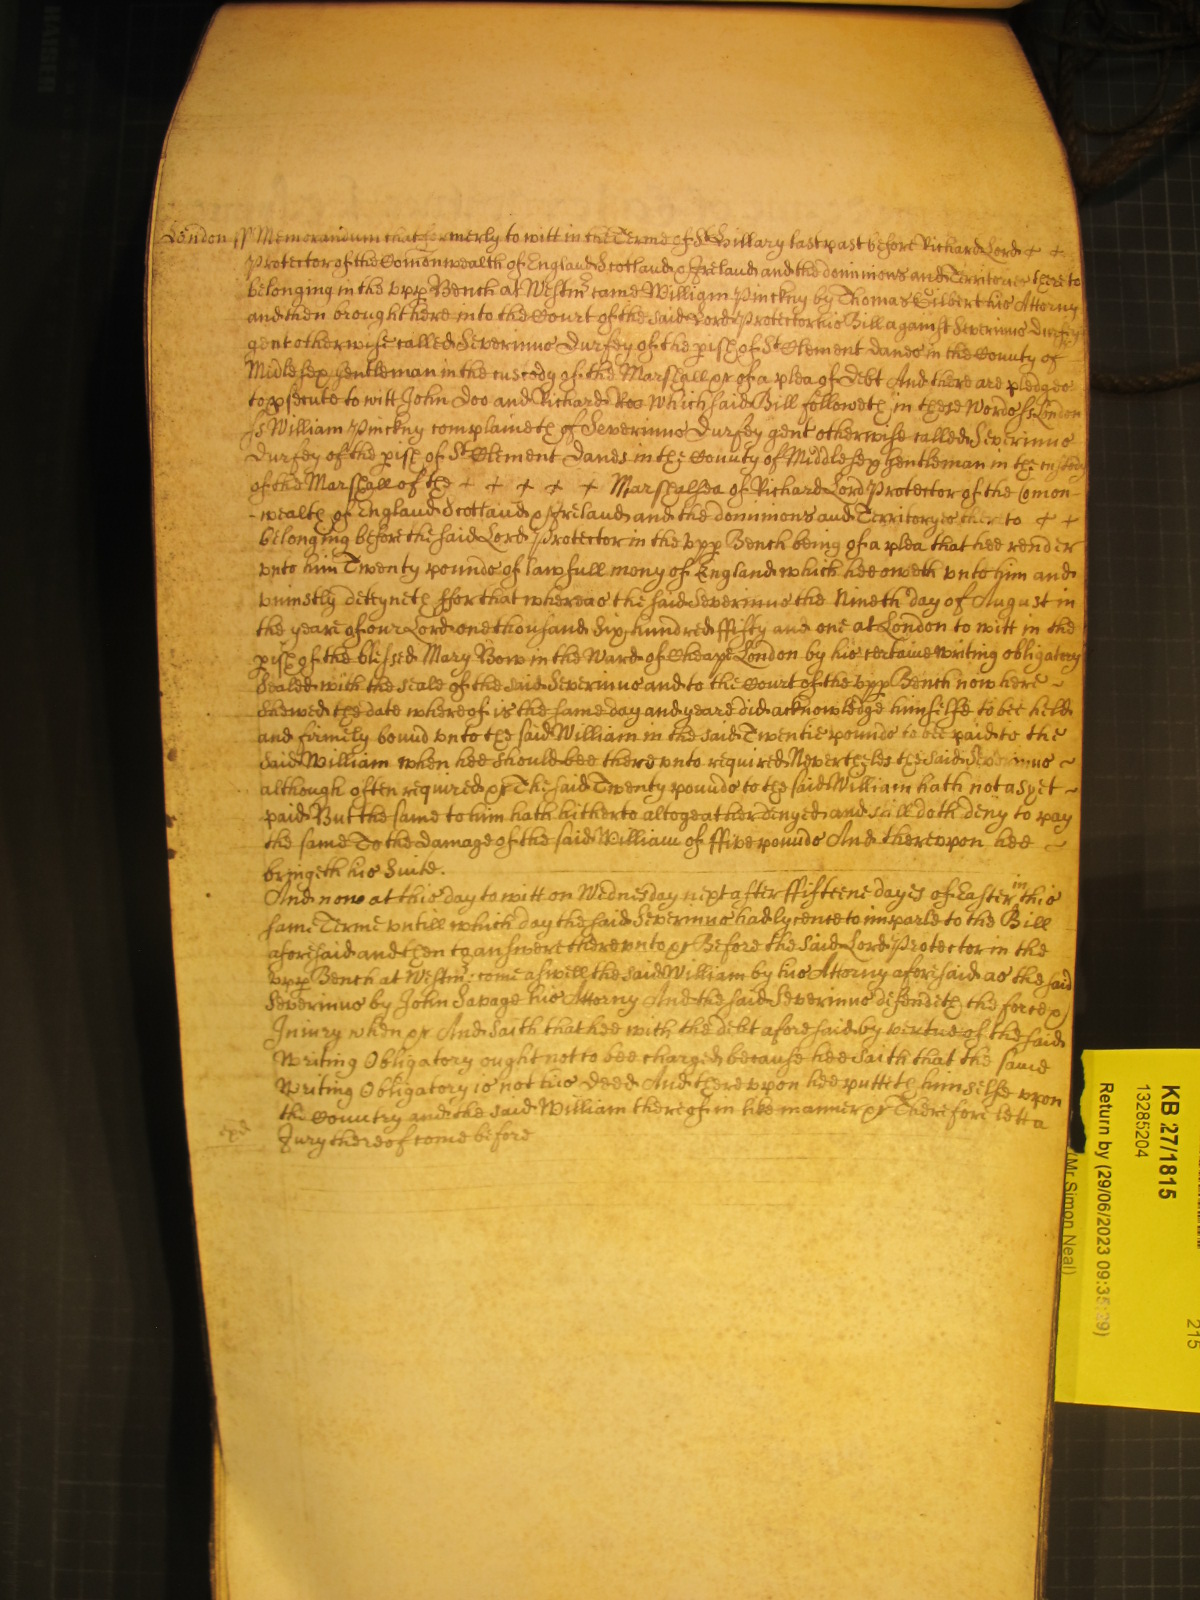 London ss Memorandum that formerly to witt in the Terme of St Hillary last past before Richard Lord + +
Protector of the Comonwealth of England Scotland & Ireland and the dominions and Territories there to
belonging in the vpp Bench at Westmr came William Pinckny by Thomas Gilbert his Attorny
and then brought here into the Court of the said Lord Protector his Bill against Severinus Durfey
gent otherwise called Severinus Durfey of the pish of St Clement Danes in the County of
Midlesex gentleman in the custody of the Marshall &c of a plea of debt And there are pledges
to psecute to witt John Doo and Richard Roo Which said Bill followeth in these Words ss London
ss William Pinckny complaineth of Severinus Durfey gent otherwise called Severinus
Durfey of the pish of St Clement Danes in the County of Middlesex gentleman in the custody
of the Marshall of the + + + + + Marshalsea of Richard Lord Protector of the Comon-
-wealth of England Scotland & Ireland and the dominions and Territoryes there to + +
belonging before the said Lord Protector in the vpp Bench being of a plea that hee render
vnto him Twenty pounds of lawfull mony of England which hee oweth vnto him and
vniustly deteyneth ffor that whereas the said Severinus the Nineth day of August in
the yeare of our Lord one thousand six hundred ffifty and one at London to witt in the
pish of the blessed Mary Bow in the Ward of Cheape London by his certaine writing obligatory
Sealed with the seale of the said Severinus and to the Court of the vpp Bench now here ~
shewed the date whereof is the same day and yeare did acknowledge himselfe to bee held
and firmely bound vnto the said William in the said Twentie pounds to bee paid to the
said William when hee should bee there vnto required Neverthelesse the said Severinus ~
although often required &c The said Twenty pounds to the said William hath not as yet ~
paid But the same to him hath hitherto altogeather denyed and still doth deny to pay
the same To the damage of the said William of ffive pounds And therevpon hee ~
bringeth his Suite.
And now at this day to witt on Wednesday next after ffifteene dayes of Easter in this
same Terme vntill which day the said Severinus had lycence to imparle to the Bill
aforesaid and then to answere therevnto &c Before the said Lord Protector in the
vpp Bench at Westmr come aswell the said William by his Attorny aforesaid as the said
Severinus by John Savage his Attorny And the said Severinus defendeth the force &
Iniury when &c And saith that hee with the debt aforesaid by vertue of the said
Writing Obligatory ought not to bee charged because hee saith that the same
Writing Obligatory is not his deed And therevpon hee putteth himselfe vpon
the Country and the said William thereof in like manner &c Therefore lett a
Jury thereof come before
KB 27/1815
13285204
Return by (29/06/2023 09:35:39)
(Mr Simon Neal)
215
KAISER